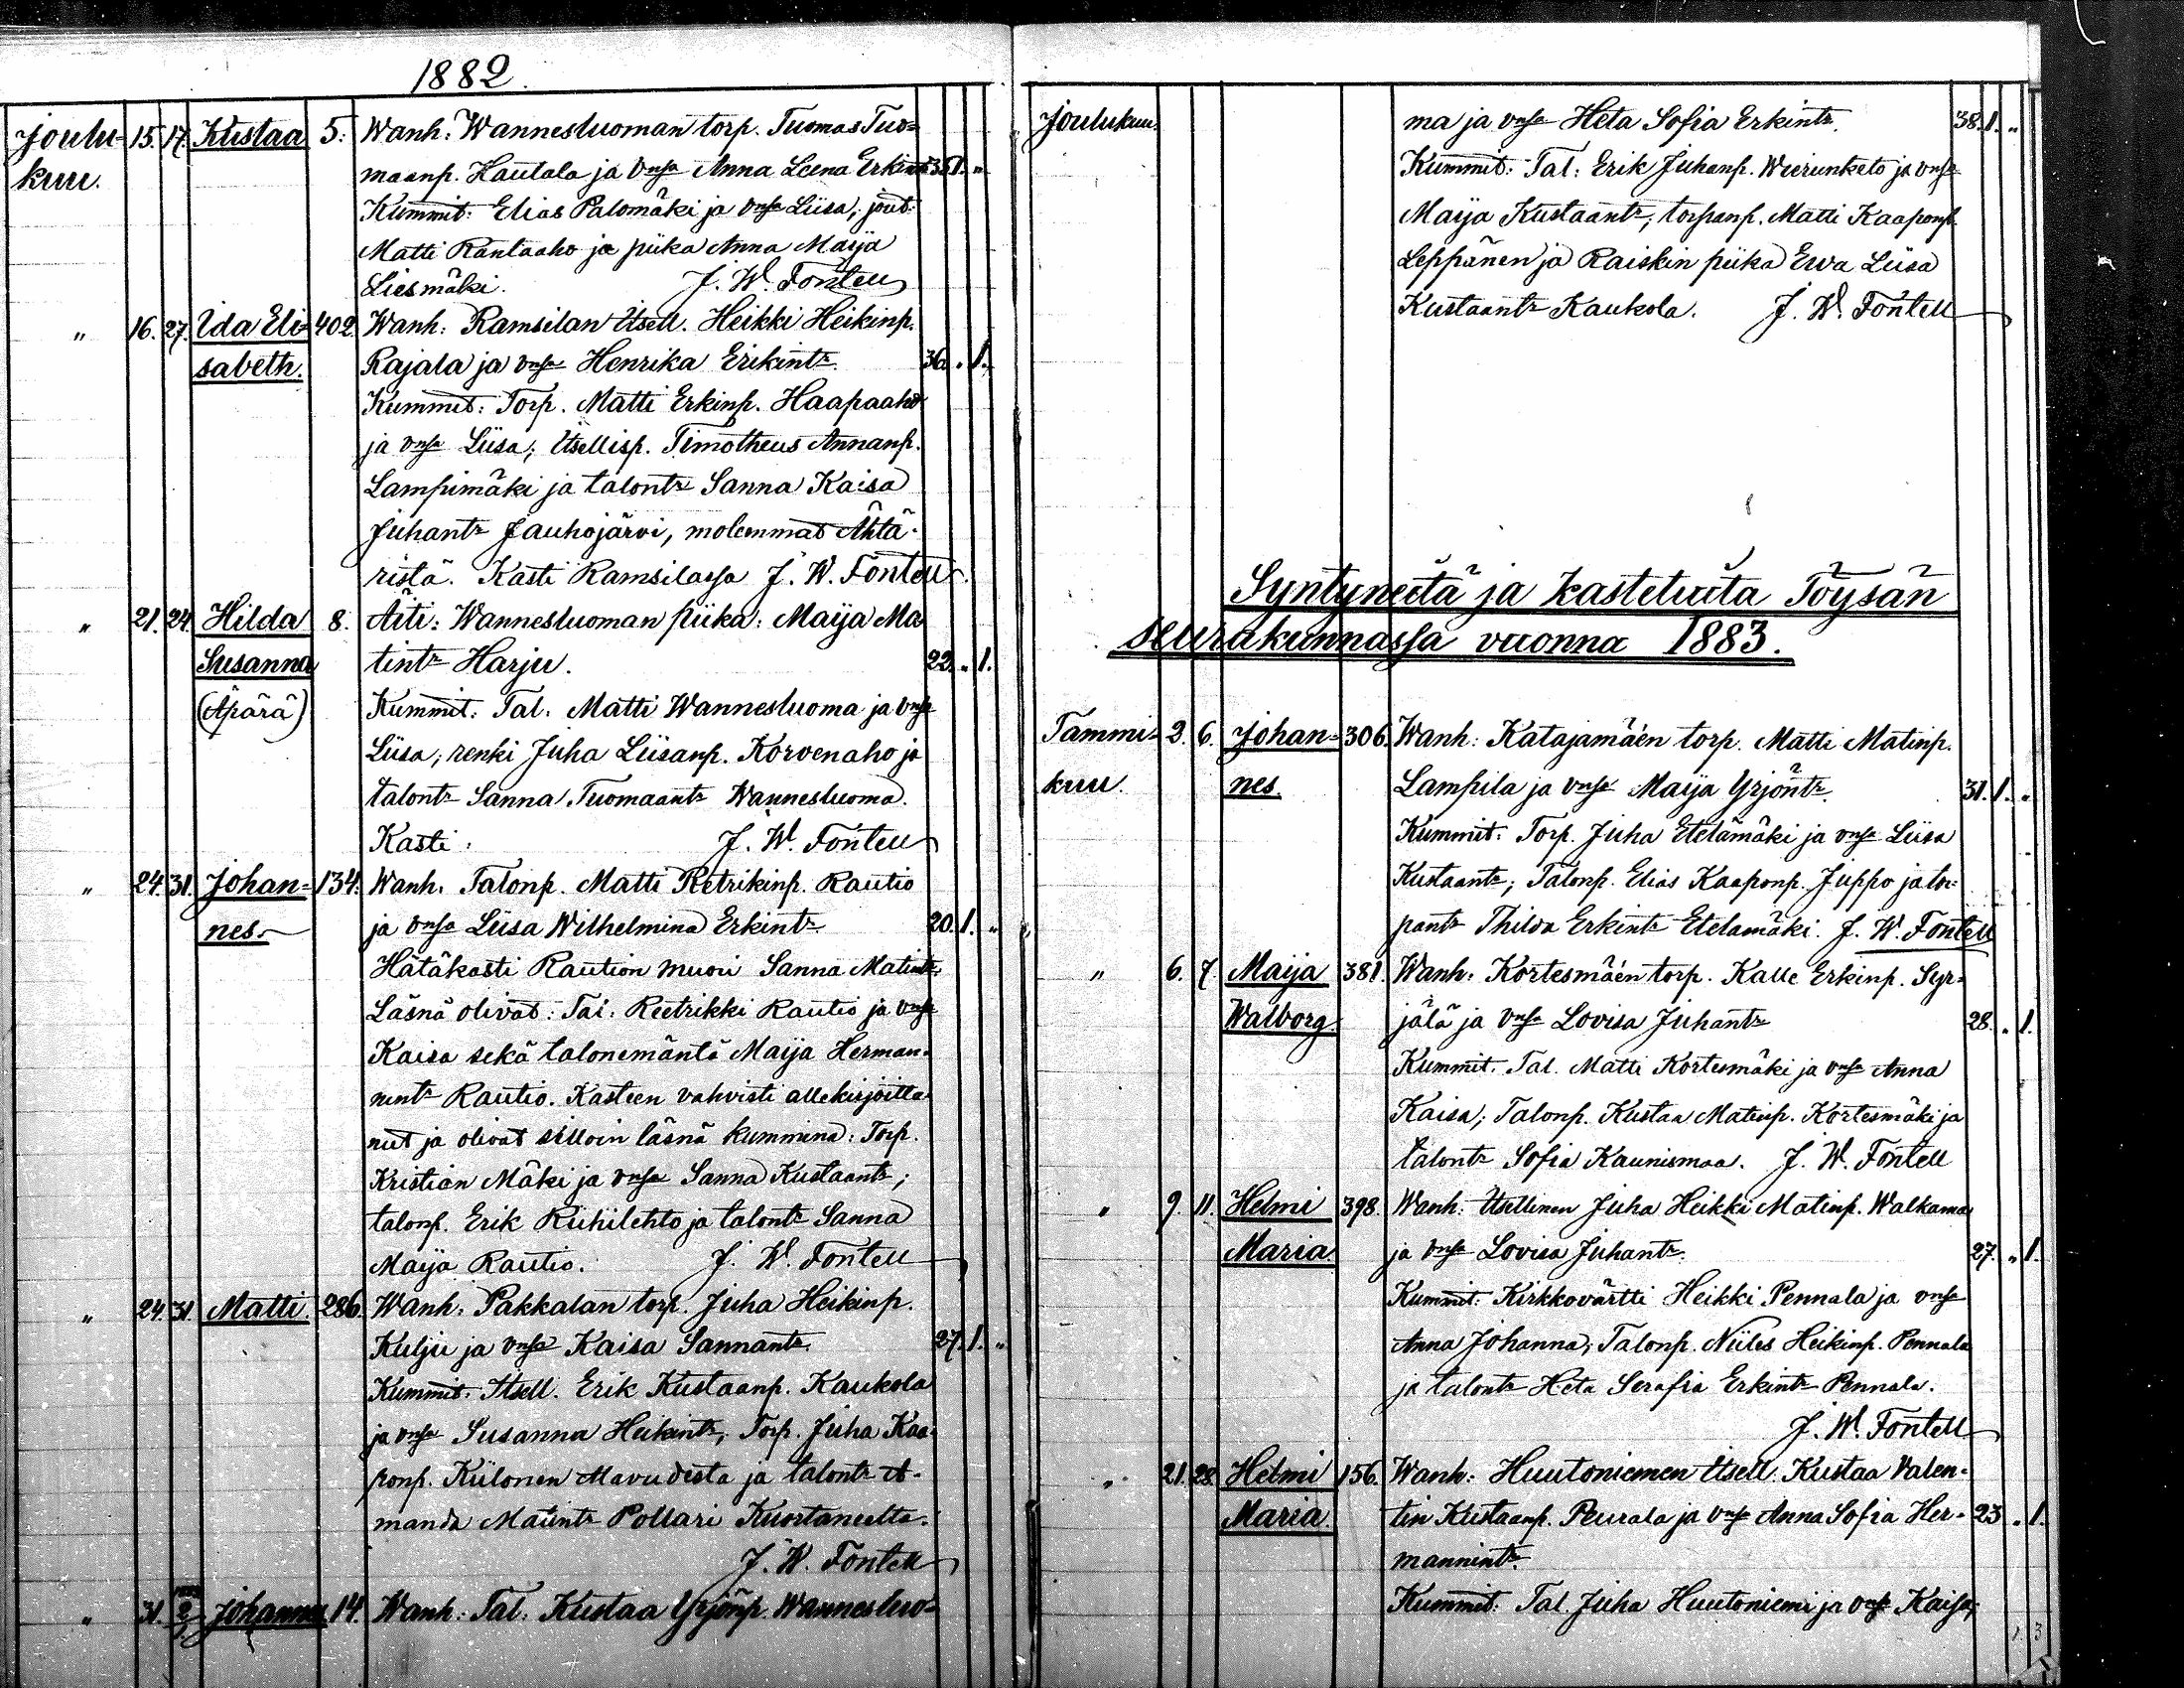 1882.
Joulu- 15. 17. Kustaa 5. Wanh: Wannesluoman torp. Tuomas Tuo-
kuu. maanp. Hautala ja vmsa Anna Leena Erkint. 35. 1. "
Kummit: Elias Palomäki ja vmsa Liisa, jout:
Matti Rantaaho ja piika Anna Maija
Liesmäki. J. W. Fontell
" 16. 27. Ida Eli- 402. Wanh: Ramsilan Itsell. Heikki Heikinp.
sabeth. Rajala ja vmsa Henrika Erikintr. 36. " 1.
Kummit: Torp. Matti Erkinp. Haapaaho
ja vmsa Liisa; Itsellisp. Timotheus Annanp.
Lampimäki ja talontr Sanna Kaisa
Juhantr Jauhojärvi, molemmat Ähtä-
ristä. Kasti Ramsilassa J. W. Fontell
" 21. 24. Hilda 8. Äiti: Wannesluoman piika: Maija Ma-
Susanna tintr Harju. 22. " 1.
(Äpärä) Kummit: Tal. Matti Wannesluoma ja vmsa
Liisa; renki Juha Liisanp. Korvenaho ja
talontr Sanna Tuomaantr Wannesluoma.
Kasti: J. W. Fontell
" 24. 31. Johan- 134. Wanh. Talonp. Matti Retrikinp. Rautio
nes. ja vmsa Liisa Wilhelmina Erkintr. 20. 1. "
Hätäkasti Raution muori Sanna Matintr.
Läsnä olivat: Tal: Reetrikki Rautio ja vmsa
Kaisa sekä talonemäntä Maija Herman-
nintr Rautio. Kasteen vahvisti allekirjoitta-
nut ja olivat silloin läsnä kummina: Torp.
Kristian Mäki ja vmsa Sanna Kustaantr;
talonp. Erik Riihilehto ja talontr Sanna
Maija Rautio. J. W. Fontell
" 24. 31. Matti. 286. Wanh: Pakkalan torp. Juha Heikinp.
Kulju ja vmsa Kaisa Sannantr. 27. 1. "
Kummit: Itsell. Erik Kustaanp. Kaukola
ja vmsa Susanna Heikintr; Torp. Juha Kaa-
ponp. Kiilonen Alavudesta ja talontr A-
manda Matintr Pollari Kuortaneelta.
J. W. Fontell
" 31. 2/1 Johanna 14. Wanh: Tal. Kustaa Yrjönp. Wannesluo-
Joulukuu. ma ja vmsa Heta Sofia Erkintr. 38. 1. "
Kummit: Tal: Erik Juhanp. Wierunketo ja vmsa
Maija Kustaantr; torpanp. Matti Kaaponp.
Leppänen ja Raiskin piika Ewa Liisa
Kustaantr Kaukola. J. W. Fontell
Syntyneitä ja kastetuita Töysän
seurakunnassa vuonna 1883.
Tammi- 2. 6. Johan- 306. Wanh: Katajamäen torp. Matti Matinp.
kuu. nes. Lampila ja vmsa Maija Yrjöntr. 31. 1. "
Kummit: Torp. Juha Etelämäki ja vmsa Liisa
Kustaantr; Talonp. Elias Kaaponp. Juppo ja tor-
pantr Thilda Erkintr Etelämäki. J. W. Fontell
" 6. 7. Maija 381. Wanh: Kortesmäen torp. Kalle Erkinp. Syr-
Walborg. jälä ja vmsa Lovisa Juhantr 28. " 1.
Kummit. Tal. Matti Kortesmäki ja vmsa Anna
Kaisa; Talonp. Kustaa Matinp. Kortesmäki ja
talontr Sofia Kaunismaa. J. W. Fontell
" 9. 11. Helmi 398. Wanh: Itsellinen Juha Heikki Matinp. Walkama
Maria. ja vmsa Lovisa Juhantr. 27. " 1.
Kummit: Kirkkovärtti Heikki Pennala ja vmsa
Anna Johanna; Talonp. Niiles Heikinp. Pennala
ja talontr Heta Serafia Erkintr Pennala.
J. W. Fontell
" 21. 28. Helmi 156. Wanh: Huutoniemen Itsell. Kustaa Valen-
Maria. tin Kustaanp. Peurala ja vmsa Anna Sofia Her- 23. " 1.
mannintr.
Kummit: Tal. Juha Huutoniemi ja vmsa Kaisa,